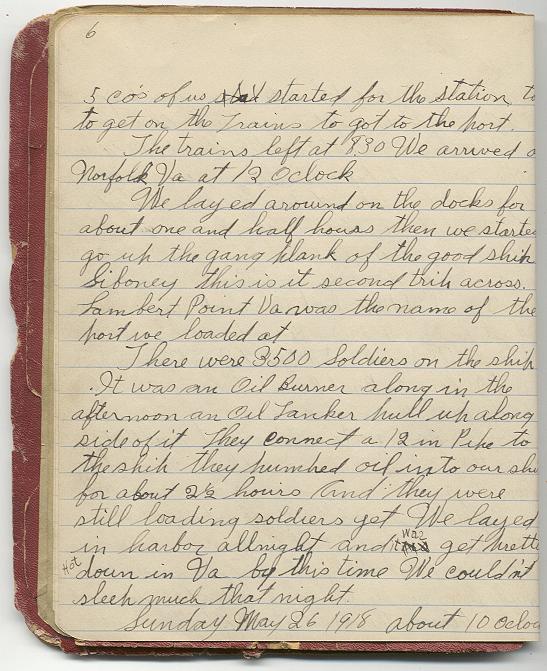 6
5 co's of us started for the station to
to get on the trains to got to the port.
The trains left at 8.30 We arrived
Norfolk Va at 12 Oclock
We layed around on the docks for
about one and half hours then we started
go up the gang plank of the good ship
Siboney this is it second trip across.
Lambert Point Va was the name of the
port we loaded at
There were 3500 Soldiers on the ship
. It was an Oil Burner along in the
afternoon an Oil Tanker pull up along
side of it They connect a 12 in Pipe to
the ship they pumped oil into our
for about 2½ hours And they were
still loading soldiers yet We layed
in harbor allnight and it was get
Hot down in Va by this time We couldn't
sleep much that night.
Sunday May 26 1918 about 10